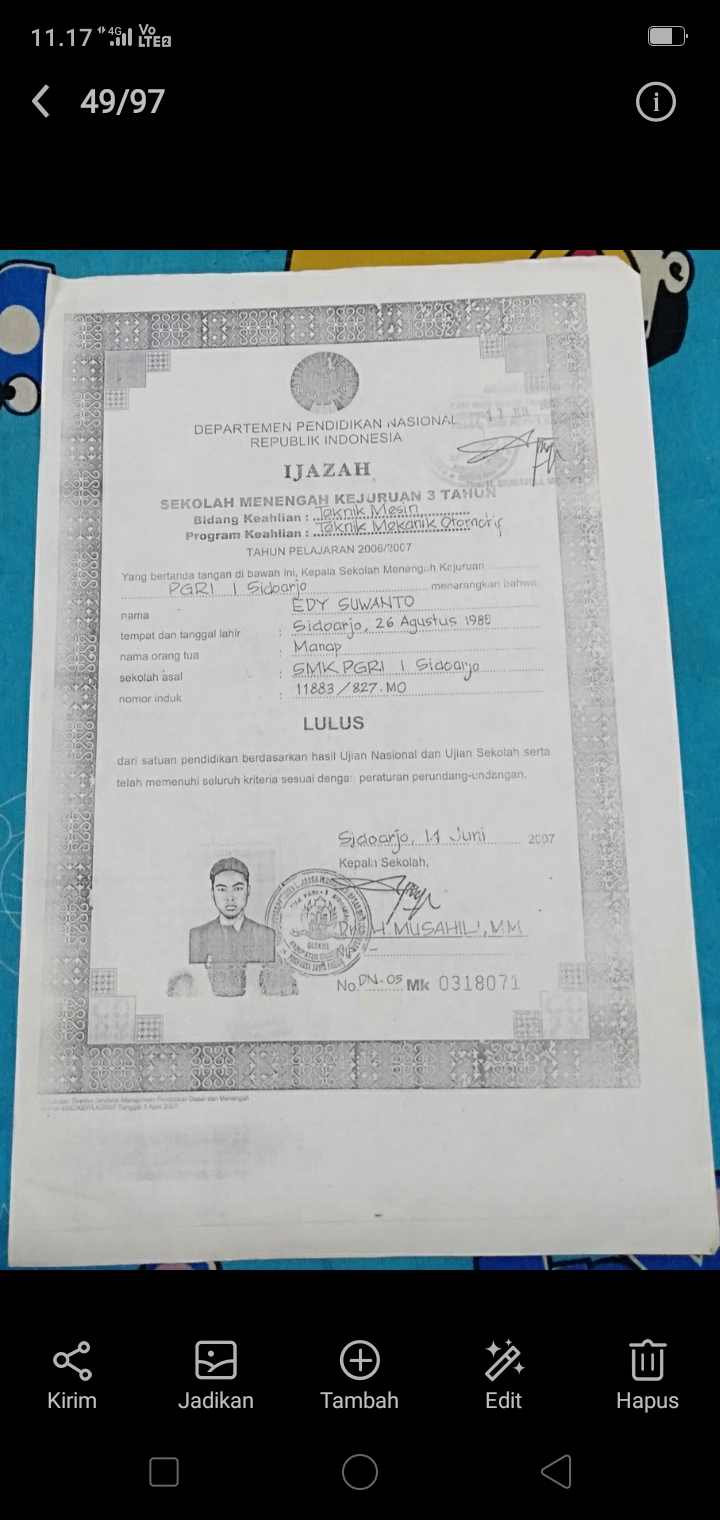 11.17 4G Vo LTE2
49/97
DEPARTEMEN PENDIDIKAN NASIONAL
REPUBLIK INDONESIA
IJAZAH
SEKOLAH MENENGAH KEJURUAN 3 TAHUN
Bidang Keahlian : Teknik Mesin
Program Keahlian : Teknik Mekanik Otomotif
TAHUN PELAJARAN 2006/2007
Yang bertanda tangan di bawah ini, Kepala Sekolah Menengah Kejuruan
PGRI 1 Sidoarjo menerangkan bahwa:
nama EDY SUWANTO
tempat dan tanggal lahir : Sidoarjo, 26 Agustus
nama orang tua : Manap
sekolah asal : SMK PGRI 1 Sidoarjo
nomor induk : 11883/827.MO
LULUS
dari satuan pendidikan berdasarkan hasil Ujian Nasional dan Ujian Sekolah serta
telah memenuhi seluruh kriteria sesuai dengan peraturan perundang-undangan.
Sidoarjo, Juni 2007
Kepala Sekolah,
H. MUSAHILI, MM
No. DN-05 Mk 0318071
Kirim
Jadikan
Tambah
Edit
Hapus